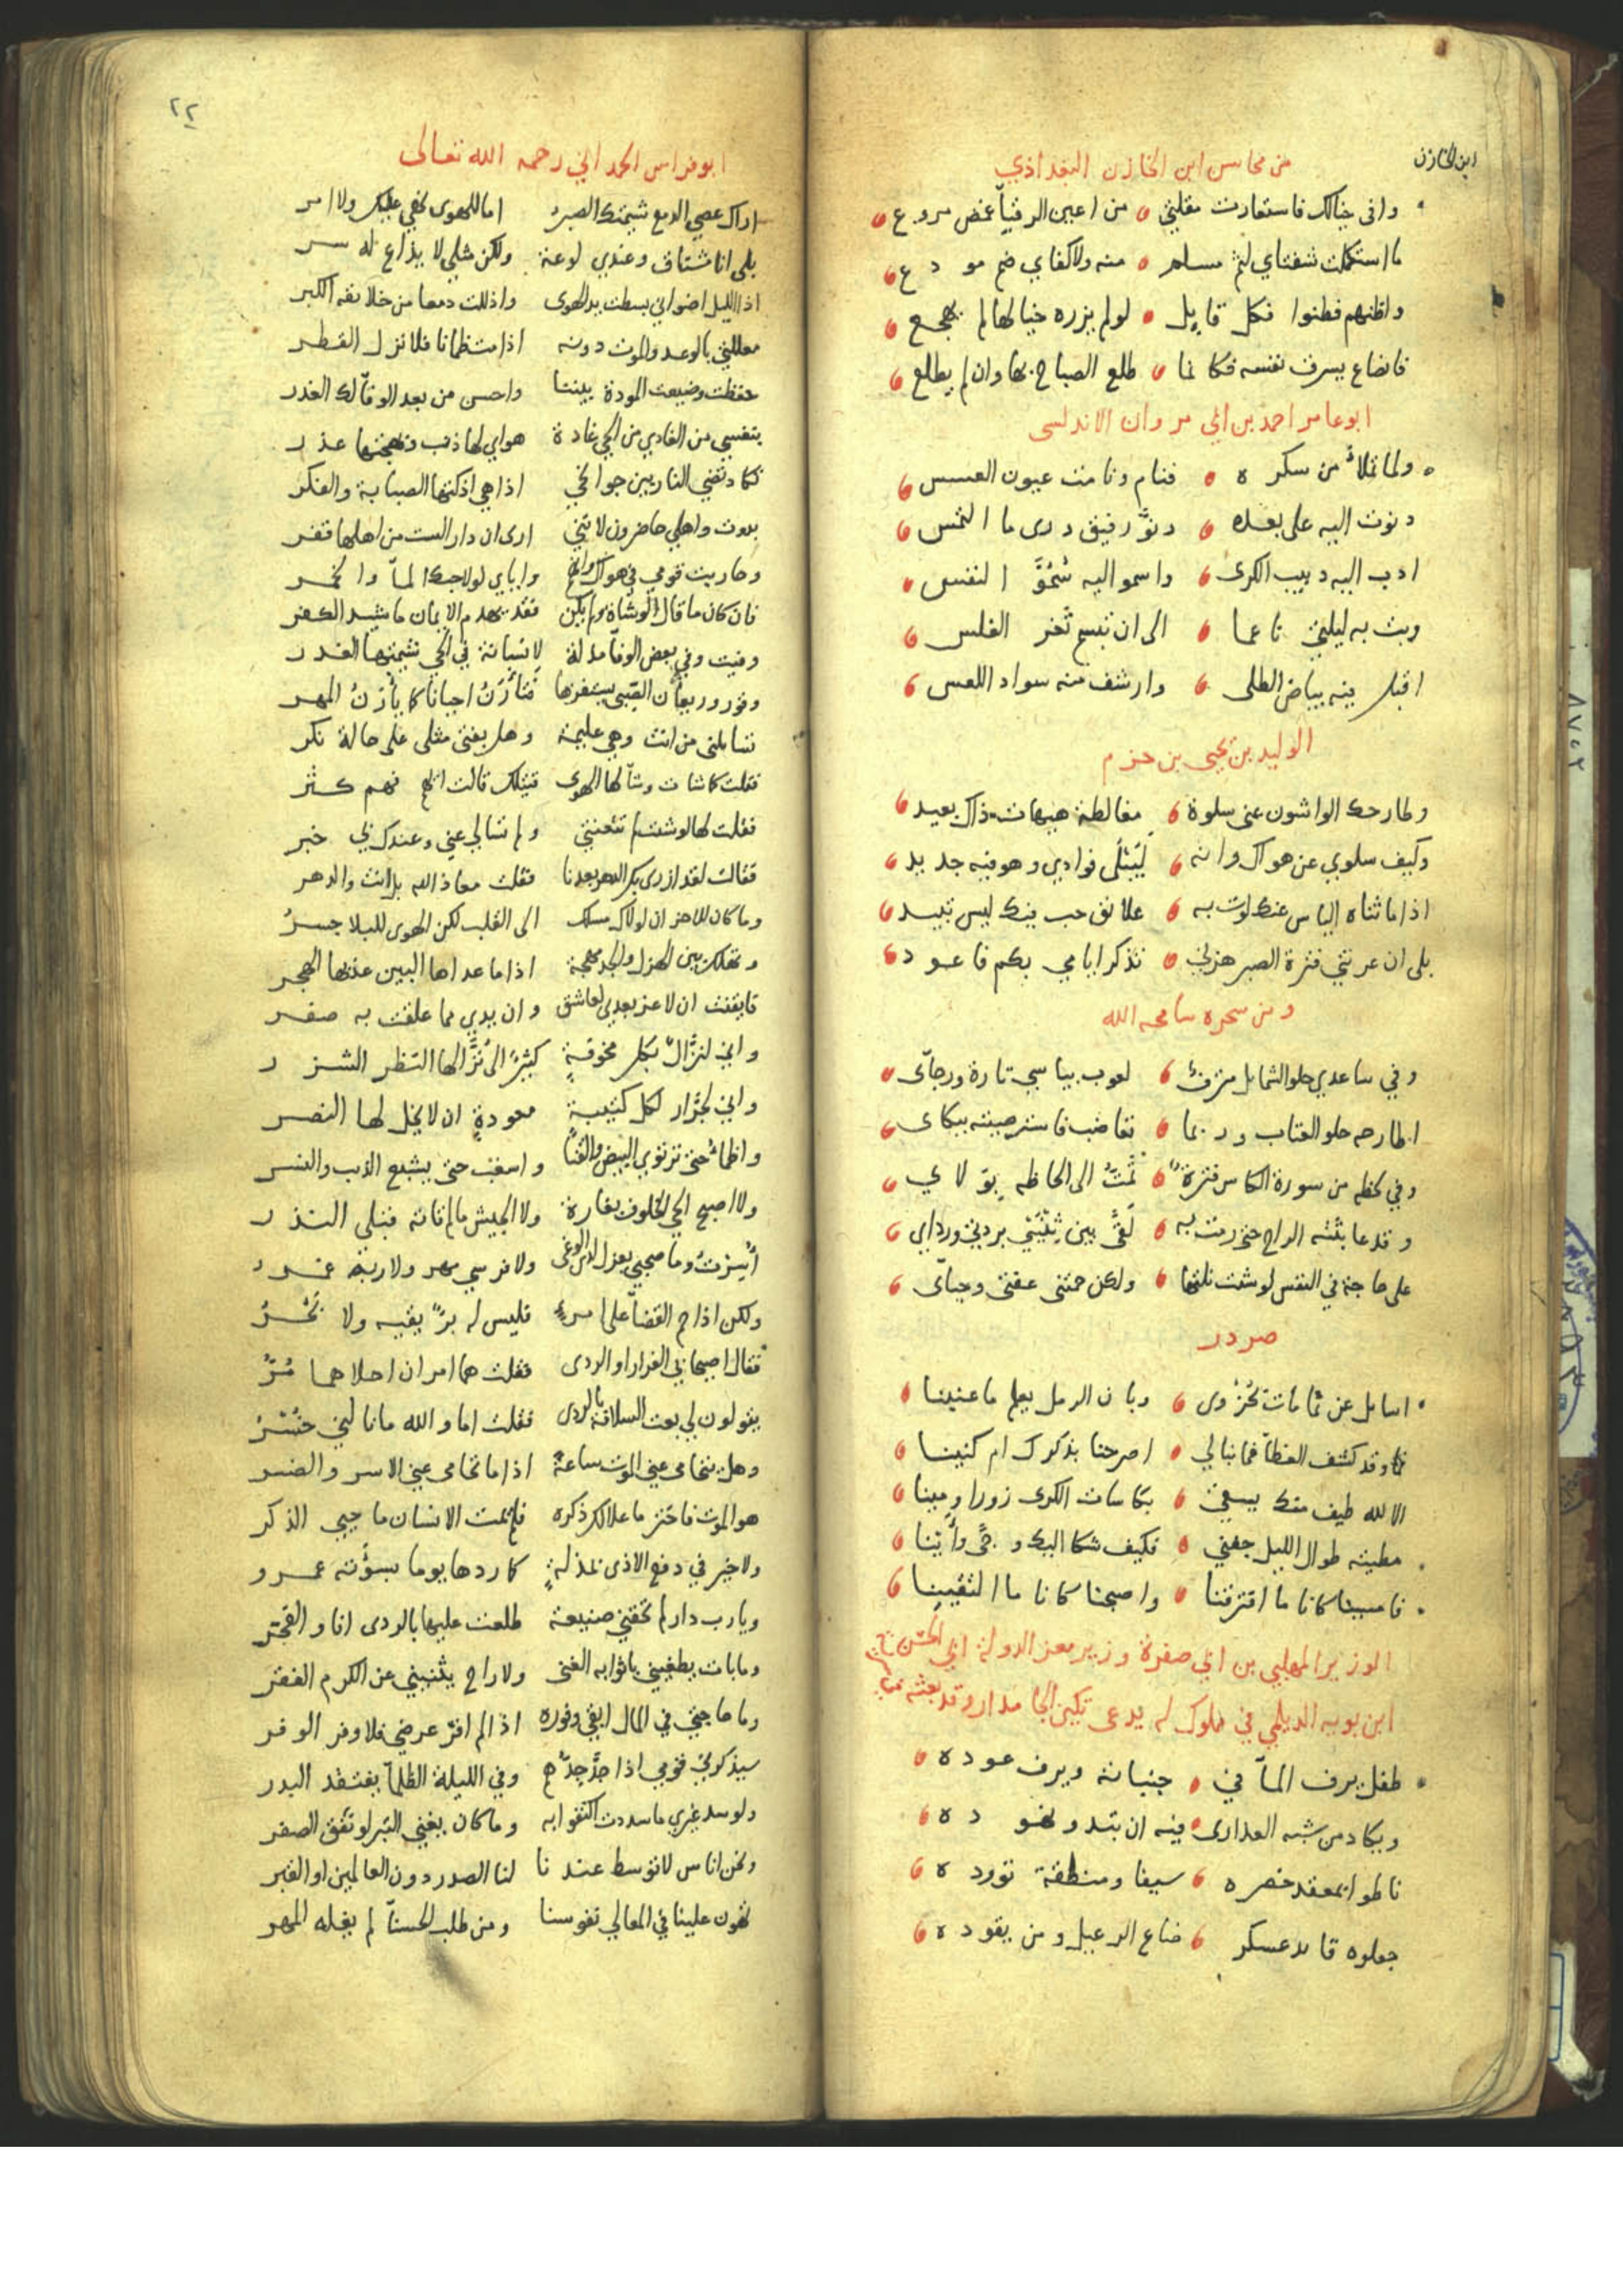 ابن الخازن
من محاسن ابن الخازن البغداذي
وافى خيالك فاستعارت مقلتي من اعين الرقباً غمض مروع
ما استكملت شفتاي لثم مسلم منه ولا كفاي ضم مودع
واظنهم فطنوا فكل قايل لو لم يزره خيالها لم يهجع
فانصاع يسرق نفسه فكانما طلع الصباح بها وان لم يطلع
ابو عامر احمد بن ابي مروان الاندلسي
ولما تملأ من سكره فنام ونامت عيون العسس
دنوت اليه على بعده دنوّ رفيق درى ما التمس
ادب اليه دبيب الكرى واسمو اليه سُمُوَّ النفس
وبت به ليلتي ناعما الى ان تبسم ثغر الغلس
اقبل منه بياض الطلى وارشف منه سواد اللعس
الوليد بن يحيى بن حزم
وطارحك الواشون عني سلوة مغالطة هيهات ذاك بعيد
وكيف سلوي عن هواك وانه لَيَبْلَى فوادي وهو فيه جديد
اذا ما ثناه الياس عنك لوت به علائق حب فيك ليس تبيد
بلى ان عرتني فترة الصبر هزني تذكر ايامي بكم فاعود
ومن سحره سامحه الله
وفي ساعدي حلو الشمايل مترف لعوب بياسي تارة ورجاّى
اطارحه حلو العتاب وربما تغاضب فاسترضيته ببكاى
وفي لحظه من سورة الكاس فترة تَمُتُّ الى الحاظه بولاي
وقد عابثته الراح حتى رمت به لَقًى بين ثِنْيَيْ بردتي وردايي
على حاجة في النفس لو شئت نلتها ولكن حمتني عفتي وحياّى
صردر
اسايل عن ثمامات بحُزْوى وبان الرمل يعلم ما عنينا
وقد كشف الغطاّ فما نبالي اصرحنا بذكرك ام كنينا
الا لله طيف منك يسقي بكاسات الكرى زورا ومينا
مطيته طوال الليل جفني فكيف شكا اليك وجًى وأينا
فامسينا كانا ما افترقنا واصبحنا كانا ما التقينا
الوزير المهلبي بن ابي صفرة وزير معز الدولة ابي الحسن
ابن بويه الديلمي في مملوك له يدعى تكين الجامدار وقد بعثه
طفل يرف الماّ في جنباته ويرف عوده
ويكاد من شبه العذارى فيه ان تبدو نهوده
ناطوا بمعقد خصره سيفا ومنطقة تووده
جعلوه قايد عسكر ضاع الرعيل ومن يقوده
٢٢
ابو فراس الحمداني رحمه الله تعالى
اراك عصي الدمع شيمتك الصبر اما للهوى نهي عليك ولا امر
بلى انا مشتاق وعندي لوعة ولكن مثلي لا يذاع له سر
اذا الليل اضواني بسطت يد الهوى واذللت دمعا من خلائقه الكبر
معللتي بالوعد والموت دونه اذا مت ظمانا فلا نزل القطر
حفظت وضيعت المودة بيننا واحسن من بعد الوفاّ لك الغدر
بنفسي من الغادين في الحي غادة هواي لها ذنب وبهجتها عذر
تكاد تضي النار بين جوانحي اذا هي اذكتها الصبابة والفكر
بدوت واهلي حاضرون لانني ارى ان دارا لست من اهلها قفر
وحاربت قومي في هواك وانهم واياي لولا حبك الماّ والخمر
فان كان ما قال الوشاة ولم يكن فقد يهدم الايمان ما شيد الكفر
وفيت وفي بعض الوفاّ مذلة لانسانة في الحي شيمتها الغدر
وقور وريعان الصبى يستفزها فتأرَنُ احيانا كما يأرَنُ المهر
تسايلني من انت وهي عليمة وهل بفتى مثلي على حالة نكر
فقلت كما شات وشاّ لها الهوى قتيلك قالت ايهم فهم كثر
فقلت لها لو شئت لم تتعنتي ولم تسالي عني وعندك بي خبر
فقالت لقد ازرى بك الدهر بعدنا فقلت معاذ الله بل انت والدهر
وما كان للاحزان لولاك مسلك الى القلب لكن الهوى للبلا جسرُ
وتهلك بين الهزل والجد مهجة اذا ما عداها البين عذبها الهجر
فايقنت ان لا عز بعدي لعاشق وان يدي مما علقت به صفر
واني لنزّالٌ بكل مخوفةٍ كثيرٌ الى نُزّالها النظر الشزر
واني لجرّار لكل كتيبة معودةٍ ان لا يخل لها النصر
واظمأ حتى ترتوي البيض والقنا واسغب حتى يشبع الذيب والنسر
ولا اصبح الحي الخلوف بغارة ولا الجيش ما لم تاته قبلي النذر
أُسِرْتُ وما صحبي بعزل لدى الوغى ولا فرسي مهر ولا ربه غمر
ولكن اذا حم القضاّ على امرء فليس له برٌّ يقيه ولا بَحْرُ
فقال اصيحابي الفرار او الردى فقلت هما امران احلاهما مُرُّ
يقولون لي بعت السلامة بالردى فقلت اما والله ما نالني خُسْرُ
وهل يتجافى عني الموت ساعة اذا ما تجافى عني الاسر والضر
هو الموت فاختر ما علا لك ذكره فلم يمت الانسان ما حيي الذكر
ولا خير في دفع الاذى بمذلةٍ كما ردها يوما بسوٴته عمرو
ويا رب دار لم تخفني منيعة طلعت عليها بالردى انا والفجر
وما بات يطغيني باثوابه الغنى ولا راح يثنيني عن الكرم الفقر
وما حاجتي في المال ابغي وفوره اذا لم افر عرضي فلا وفر الوفر
سيذكرني قومي اذا جدَّ جِدُّهم وفي الليلة الظلماّ يفتقد البدر
ولو سد غيري ما سددت اكتفوا به وما كان يغني التبر لو نفق الصفر
ونحن اناس لا توسط عندنا لنا الصدر دون العالمين او القبر
تهون علينا في المعالي نفوسنا ومن طلب الحسناّ لم يغله المهر